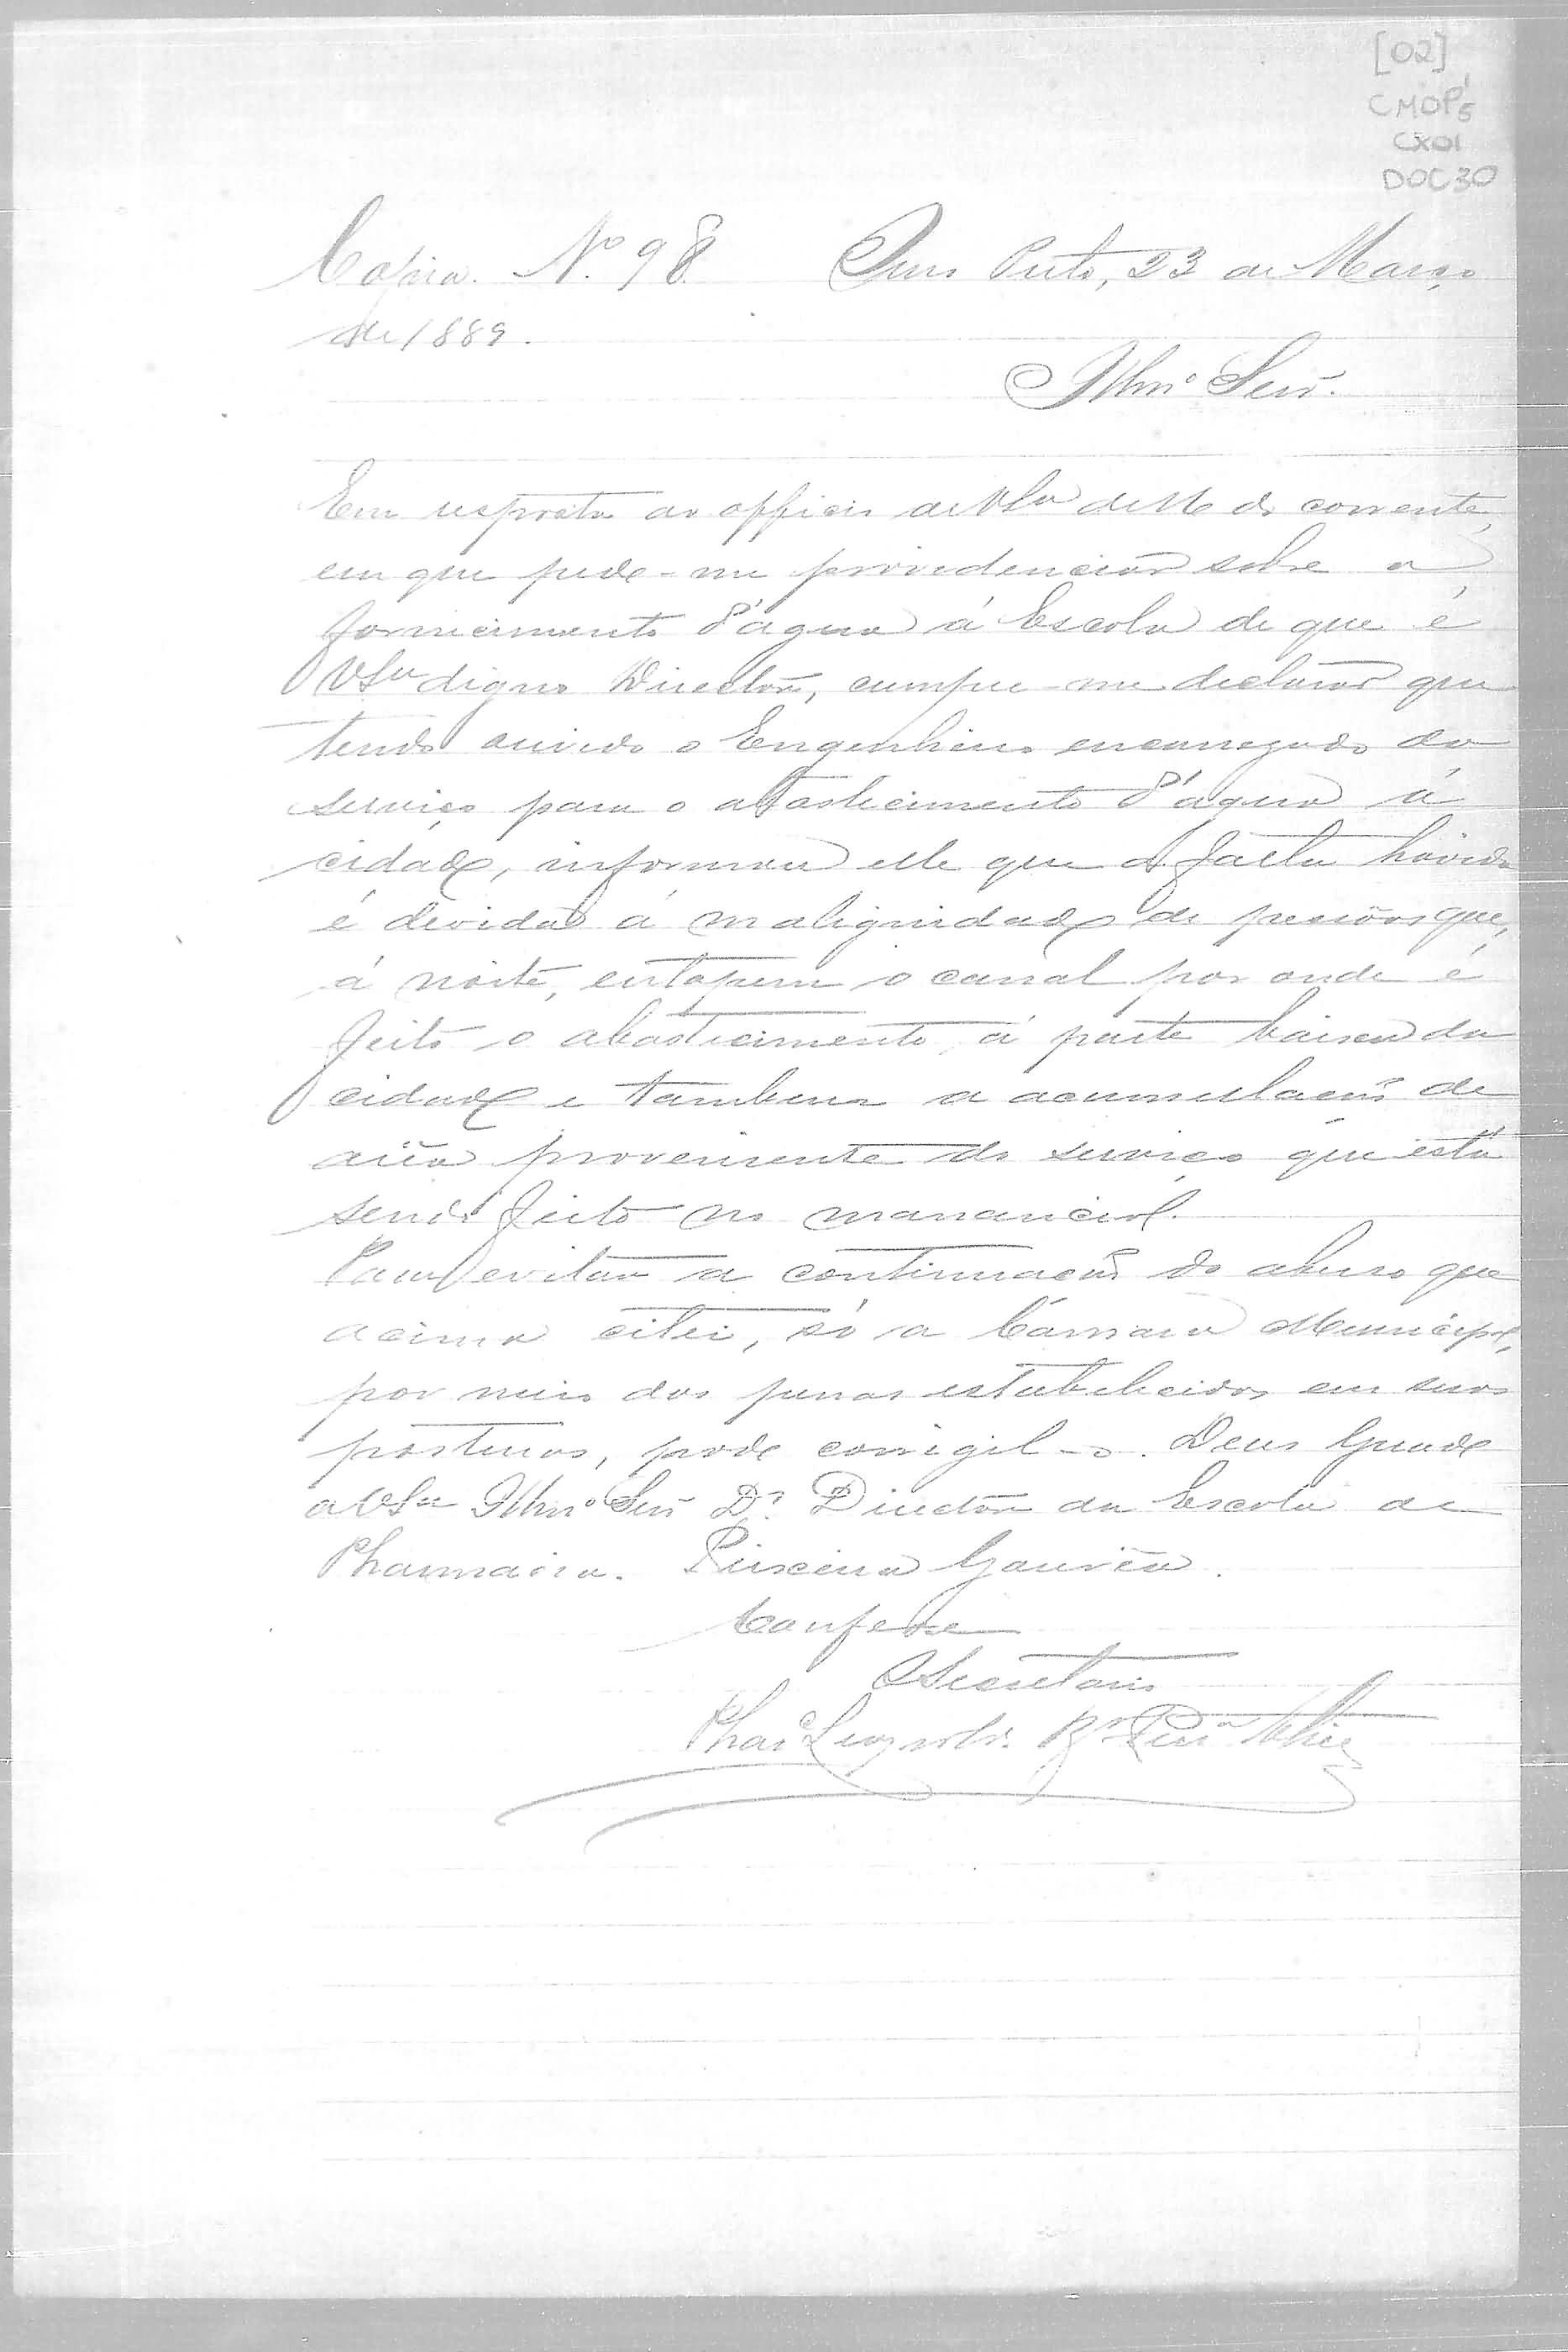 [02]
CMOP
CX01
DOC 30
Copia. Nº 98. Ouro Preto, 23 de Março
de 1889.
Illmº Senr.
Em resposta ao officio de VSª de do corrente,
em que pede-me providenciar sobre o
fornecimento d'agua á Escola de que é
VSª digno Director, cumpre-me declarar que
tendo ouvido o Engenheiro encarregado do
serviço para o abastecimento d'agua á
cidade, informou elle que a falta havida
é devida á malignidade de pessôas que,
á noite, entopem o canal por onde é
feito o abastecimento á parte baixa da
cidade e tambem a acumulação de
arêa proveniente do serviço que está
sendo feito no manancial.
Para evitar a continuação do abuso que
acima citei, só a Câmara Municipal,
por meio das penas estabelecidas em suas
posturas, pode corrigil-o. Deus Guarde
a VSª Illmº Senr Dr. Director da Escola de
Pharmacia.
Confere
O Secretario